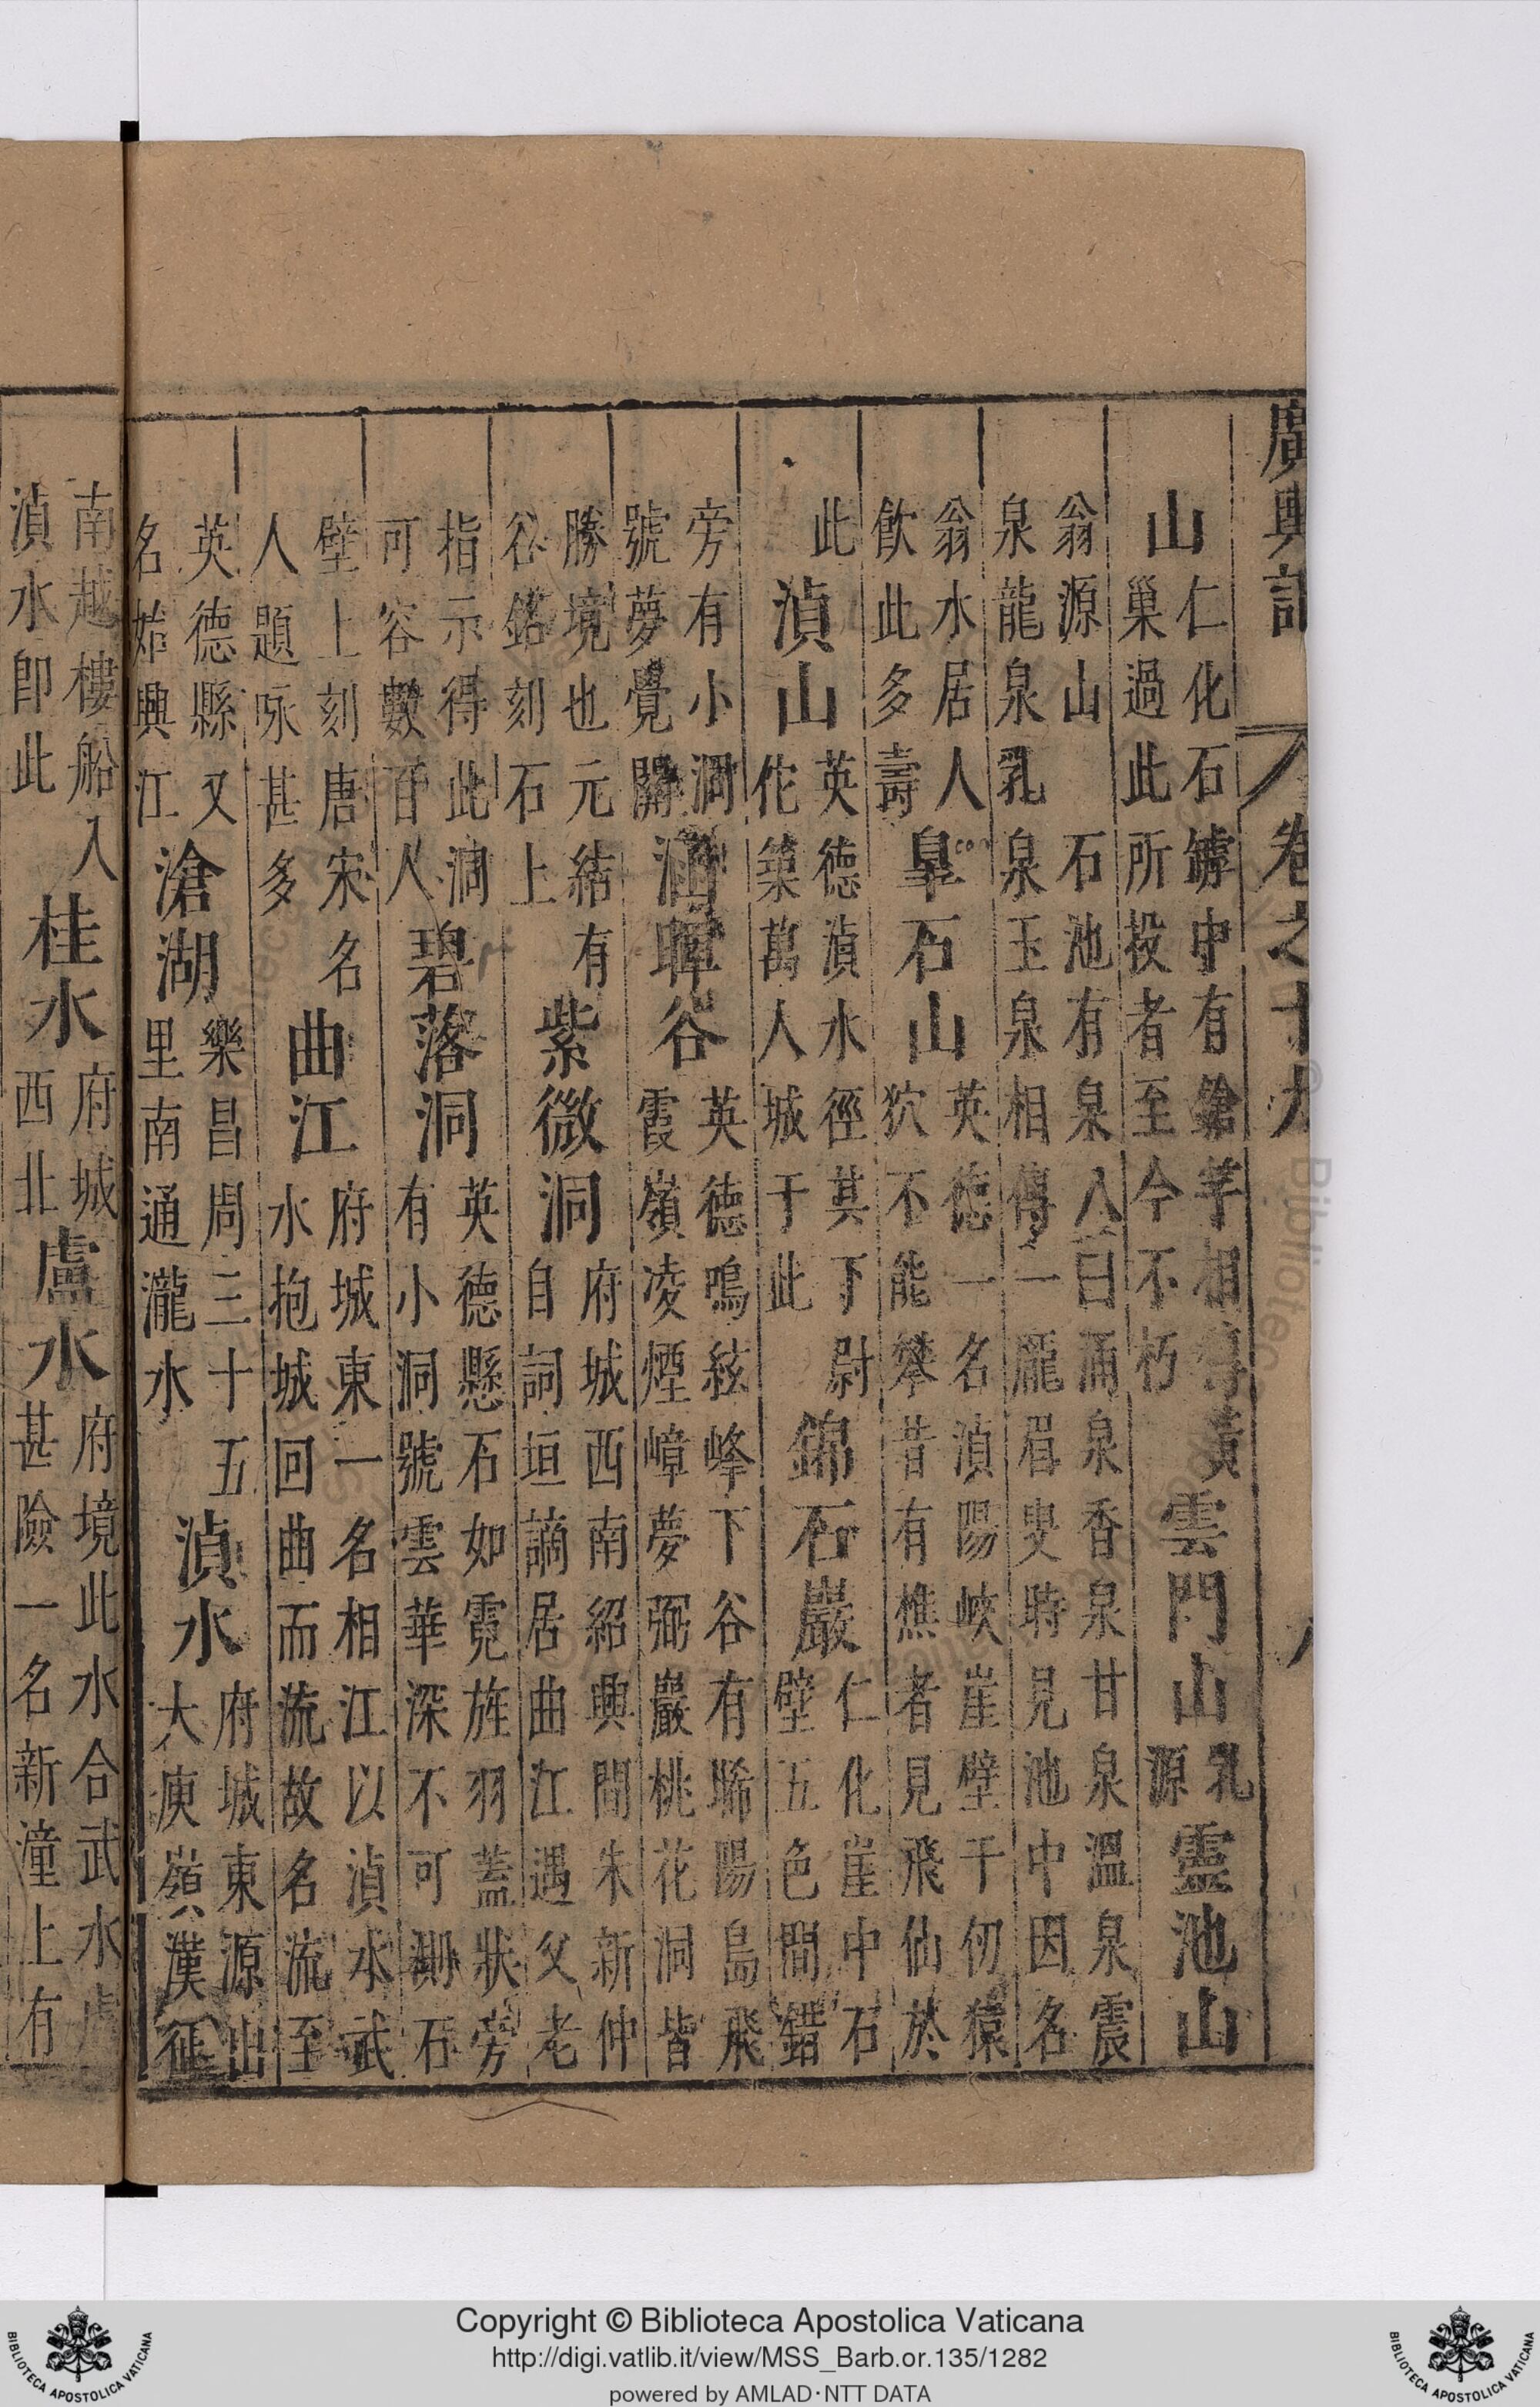 廣輿記 卷之十九
山 仁化石罅中有鎗竿相傳黃
巢過此所投者至今不朽 雲門山 乳源 靈池山
翁源山石池有泉八曰涌泉香泉甘泉溫泉震
泉龍泉乳泉玉泉相傳一龎眉叟時見池中因名
翁水居人
飲此多壽 皐石山 英德一名湞陽峽崖壁千仞猿
狖不能攀昔有樵者見飛仙於
此 湞山 英德湞水徑其下尉
佗築萬人城于此 錦石巖 仁化崖中石
壁五色間錯
旁有小洞
號夢覺關 涵暉谷 英德鳴絃峰下谷有晞陽島飛
霞嶺凌煙嶂夢弼巖桃花洞皆
勝境也元結有
谷銘刻石上 紫微洞 府城西南紹興間朱新仲
自詞垣謫居曲江遇父老
指示得此洞
可容數百人 碧落洞 英德懸石如霓旌羽蓋狀旁
有小洞號雲華深不可測石
壁上刻唐宋名
人題咏甚多 曲江 府城東一名相江以湞水武
水抱城回曲而流故名流至
英德縣又
名始興江 滄湖 樂昌周三十五
里南通瀧水 湞水 府城東源出
大庾嶺漢征
南越樓船入
湞水即此 桂水 府城
西北 盧水 府境此水合武水
甚險一名新潼上有
Copyright © Biblioteca Apostolica Vaticana
http://digi.vatlib.it/view/MSS_Barb.or.135/1282
powered by AMLAD·NTT DATA
BIBLIOTECA APOSTOLICA VATICANA
BIBLIOTECA APOSTOLICA VATICANA